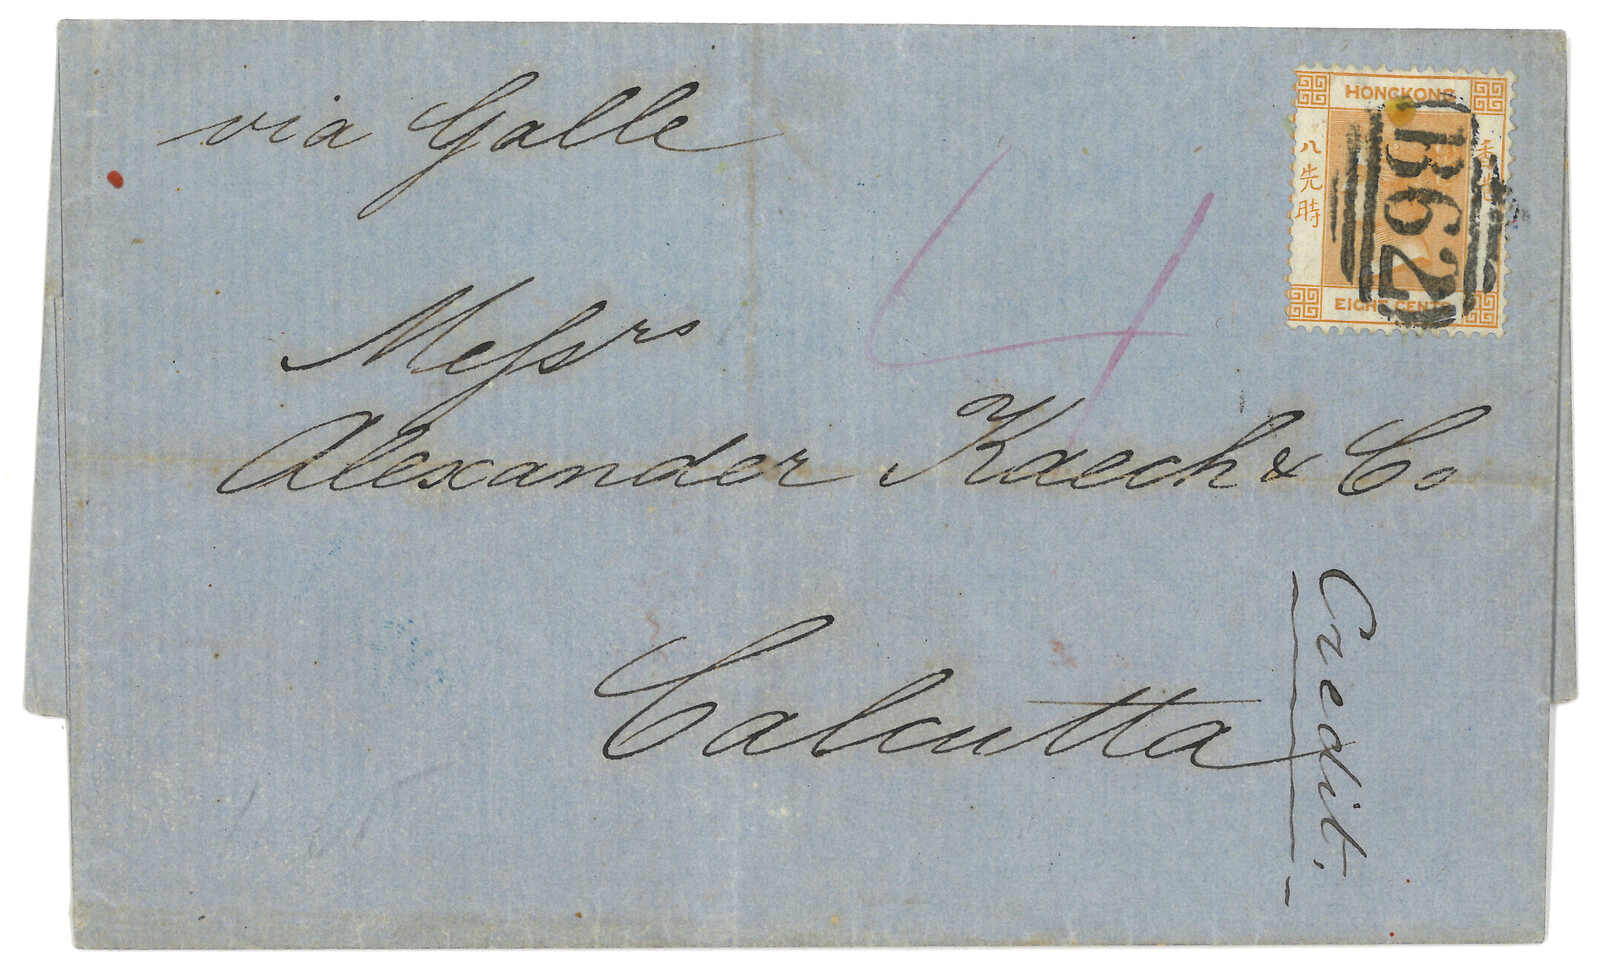 via Galle
HONGKONG
八先時
香港
B62
EIGHT CENTS
4
Messrs
Alexander Kaech & Co
Calcutta
Credit.